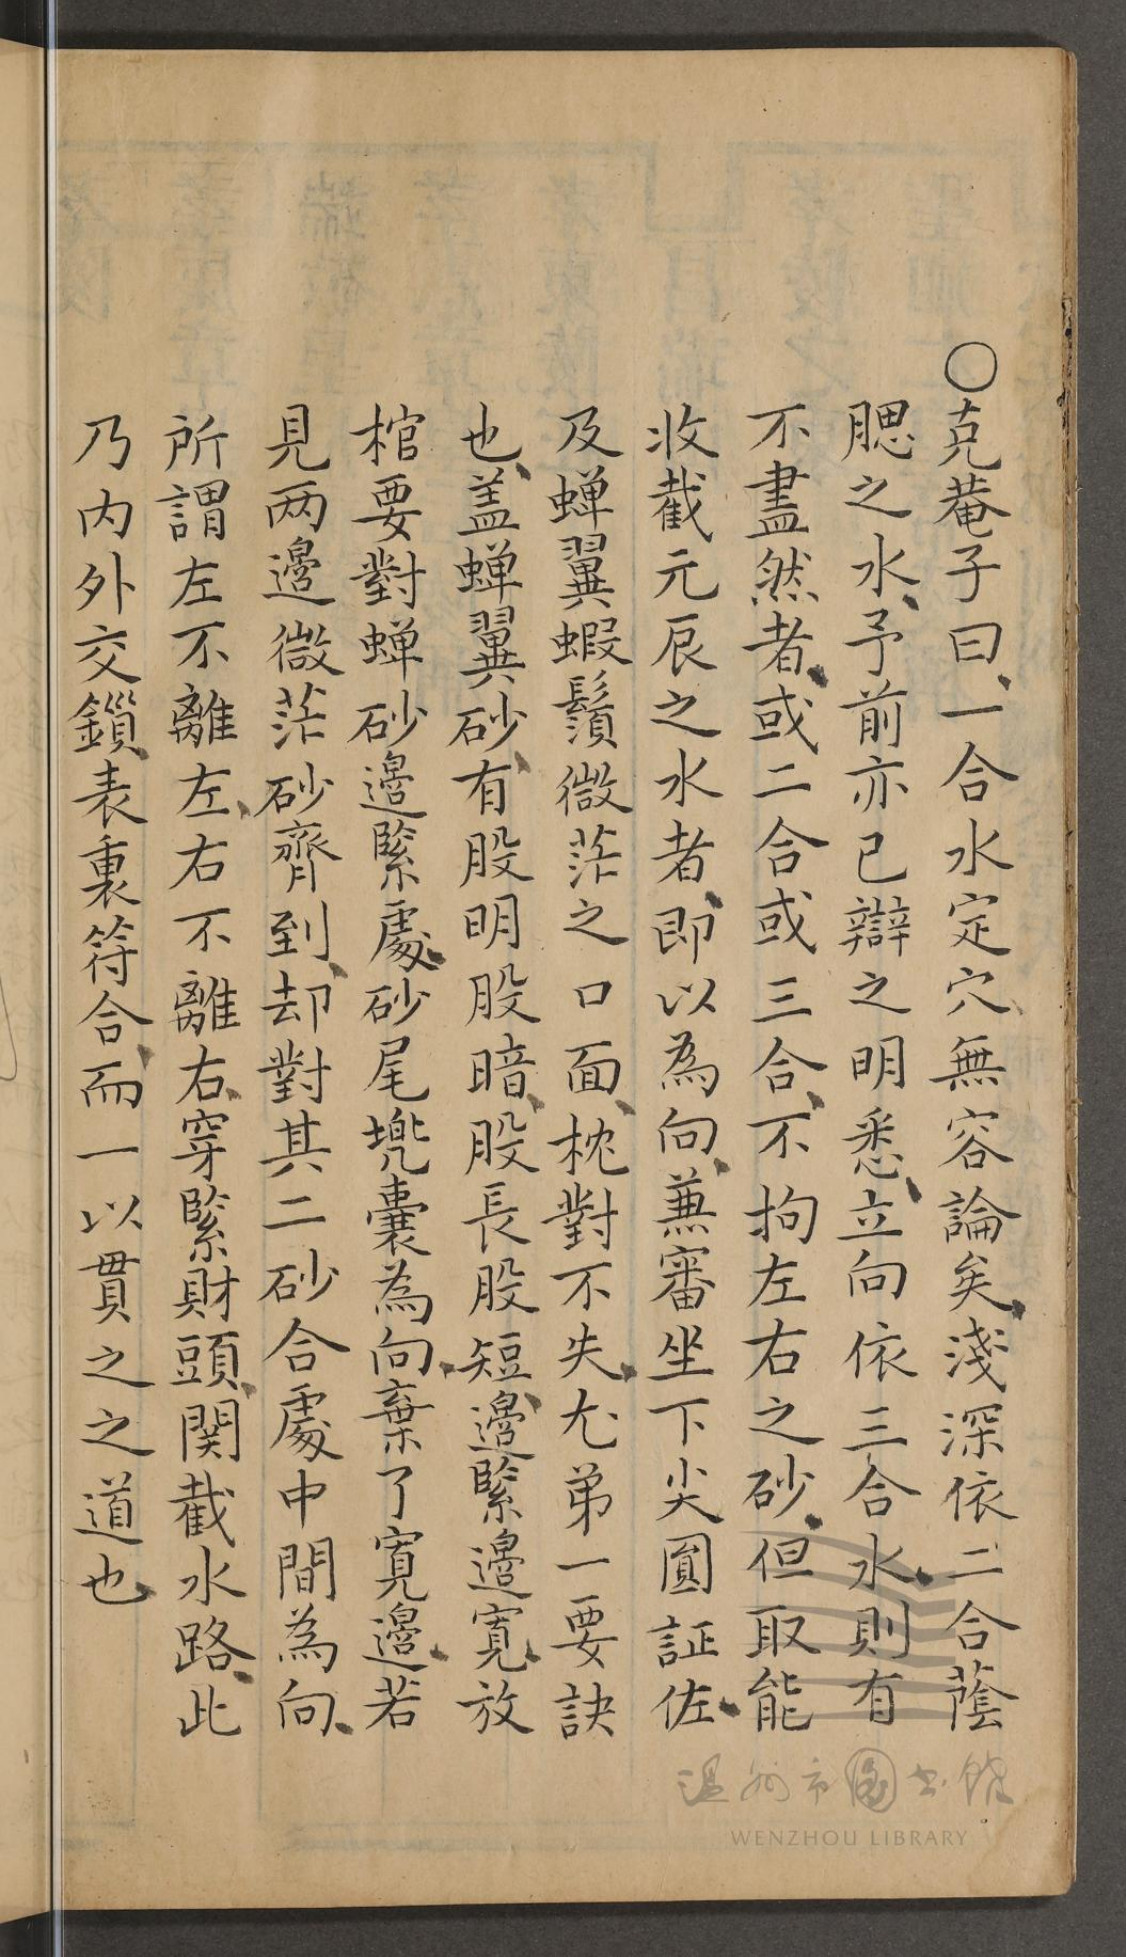 〇克菴子曰、一合水定穴、無容論矣、淺深依二合蔭
腮之水、予前亦已辯之明悉、立向依三合水、則有
不盡然者、或二合或三合、不拘左右之砂、但取能
收截元辰之水者、即以為向、蒹審坐下尖圓証佐、
及蝉翼蝦鬚微茫之口面、枕對不失、尤弟一要訣
也、盖蝉翼砂、有股明股暗、股長股短、邊緊邊寬、放
棺要對蝉砂邊緊處、砂尾兠囊為向、棄了寬邊、若
見两邊微茫砂齊到、却對其二砂合處中間為向、
所謂左不離左、右不離右、穿緊財頭、関截水路、此
乃内外交鎻、表裏符合、而一以貫之之道也、
温州市图书馆
WENZHOU LIBRARY